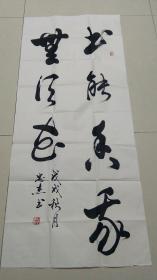 书能香我
無须花
戊戌秋月
书